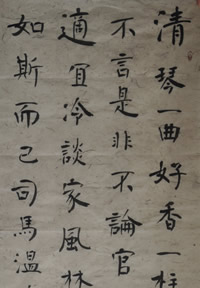 清琴一曲好香一炷
不言是非不論官
適宜冷談家風林
如斯而已司馬溫